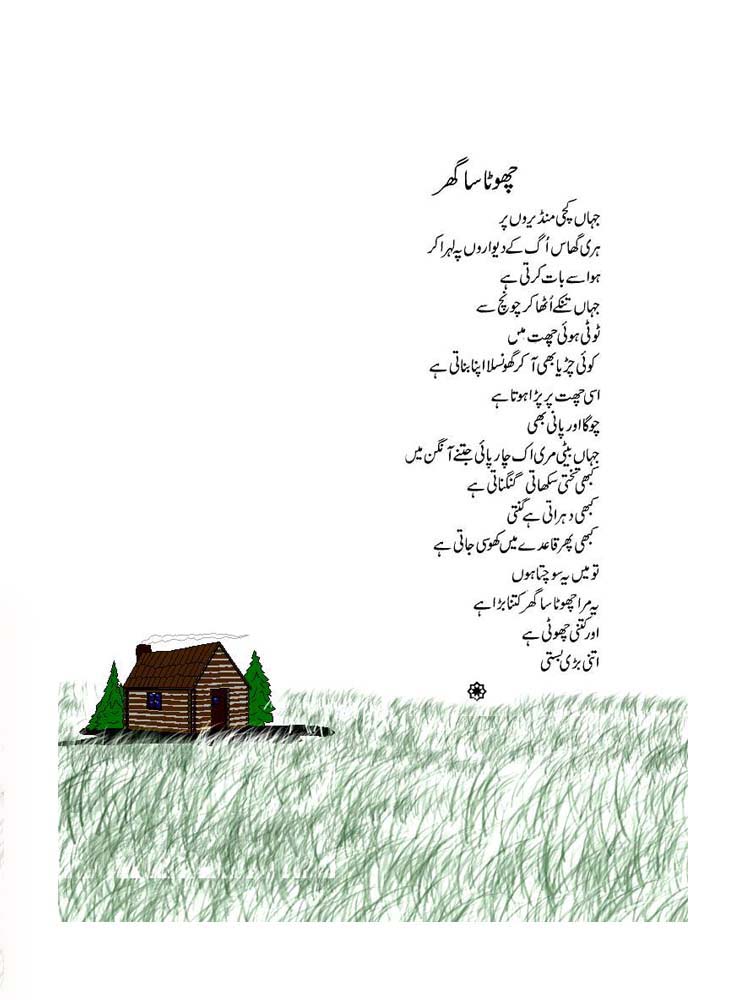 چھوٹا سا گھر
جہاں کچی منڈیروں پر
ہری گھاس اُگ کے دیواروں پہ لہرا کر
ہوا سے بات کرتی ہے
جہاں تنکے اُٹھا کر چونچ سے
ٹوٹی ہوئی چھت میں
کوئی چڑیا بھی آ کر گھونسلا اپنا بناتی ہے
اسی چھت پر پڑا ہوتا ہے
چوگا اور پانی بھی
جہاں بیٹی مری اک چارپائی جتنے آنگن میں
کبھی تختی سکھاتی گنگناتی ہے
کبھی دہراتی ہے گنتی
کبھی پھر قاعدے میں کھو سی جاتی ہے
تو میں یہ سوچتا ہوں
یہ مرا چھوٹا سا گھر کتنا بڑا ہے
اور کتنی چھوٹی ہے
اتنی بڑی بستی